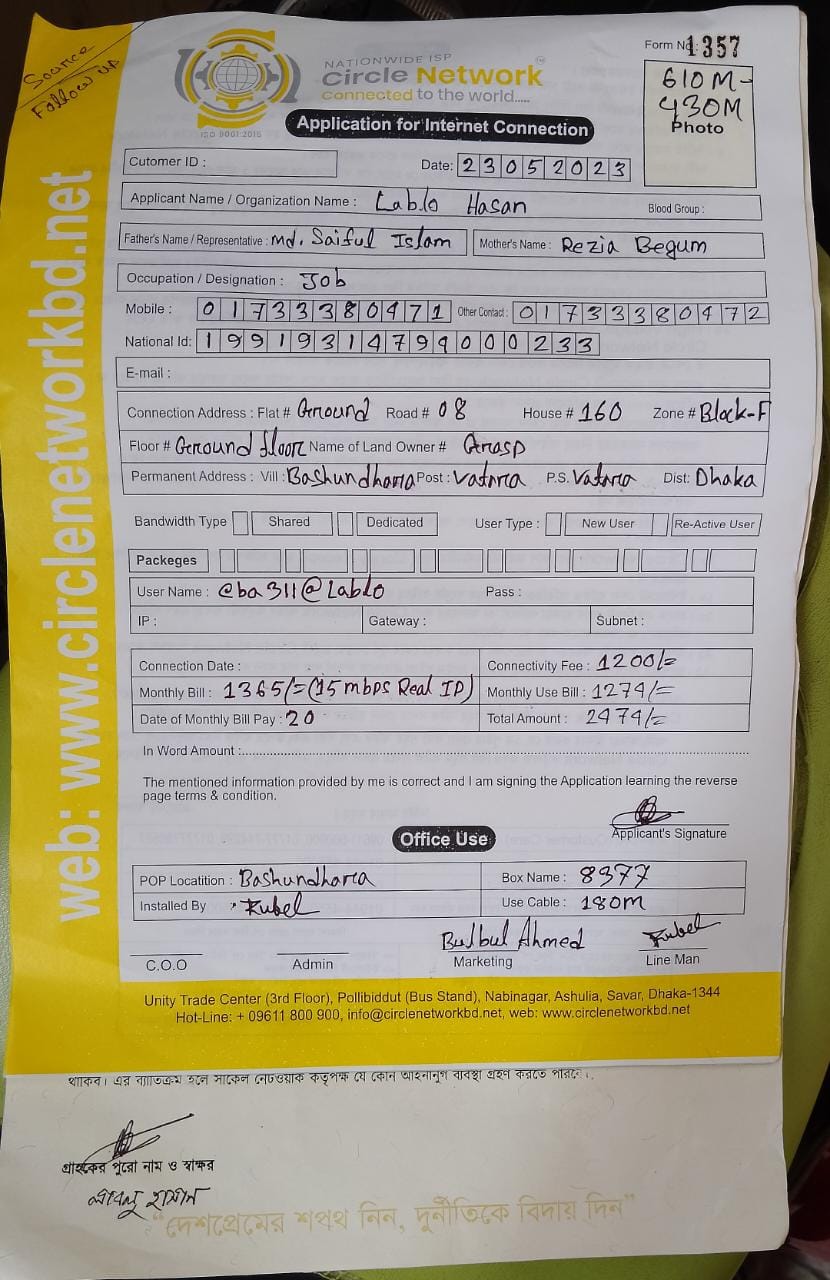 Source
Follow up
web: www.circlenetworkbd.net
ISO 9001:2015
NATIONWIDE ISP
Circle Network
connected to the world.....
Form No: 1357
610M-
430M
Photo
Application for Internet Connection
Cutomer ID :
Date: 23052023
Applicant Name / Organization Name : Lablo Hasan Blood Group :
Father's Name / Representative : md. Saiful Islam Mother's Name : Rezia Begum
Occupation / Designation : Job
Mobile : 01733380471 Other Contact : 01733380472
National Id: 19919314799000233
E-mail :
Connection Address : Flat # Ground Road # 08 House # 160 Zone # Block-F
Floor # Ground floor Name of Land Owner # Grasp
Permanent Address : Vill : Bashundhara Post : Vatara P.S. Vatara Dist: Dhaka
Bandwidth Type Shared Dedicated User Type : New User Re-Active User
Packeges
User Name : @ba311@Lablo Pass :
IP : Gateway : Subnet :
Connection Date : Connectivity Fee : 1200/=
Monthly Bill : 1365/= (15 mbps Real IP) Monthly Use Bill : 1274/=
Date of Monthly Bill Pay : 20 Total Amount : 2474/=
In Word Amount :
The mentioned information provided by me is correct and I am signing the Application learning the reverse
page terms & condition.
Applicant's Signature
Office Use
POP Locatition : Bashundhara Box Name : 8377
Installed By Rubel Use Cable : 180M
Bulbul Ahmed Rubel
C.O.O Admin Marketing Line Man
Unity Trade Center (3rd Floor), Pollibiddut (Bus Stand), Nabinagar, Ashulia, Savar, Dhaka-1344
Hot-Line: + 09611 800 900, info@circlenetworkbd.net, web: www.circlenetworkbd.net
থাকিব। এর ব্যাতিক্রম হলে সার্কেল নেটওয়ার্ক কতৃপক্ষ যে কোন আইনানুগ ব্যবস্থা গ্রহণ করতে পারবে।
গ্রাহকের পুরো নাম ও স্বাক্ষর
লাবলু হাসান
“দেশপ্রেমের শপথ নিন, দুর্নীতিকে বিদায় দিন”